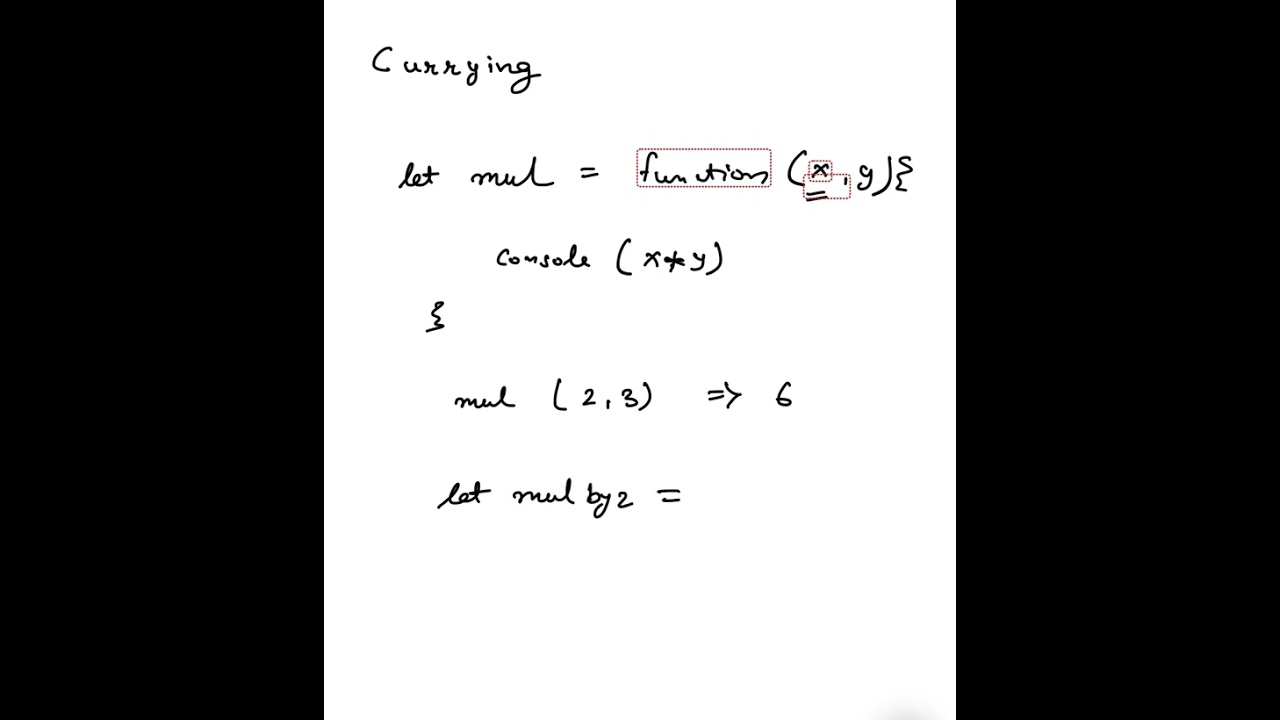 Currying
let mul = function (x, y){
console (x*y)
}
mul (2,3) => 6
let mulby2 =